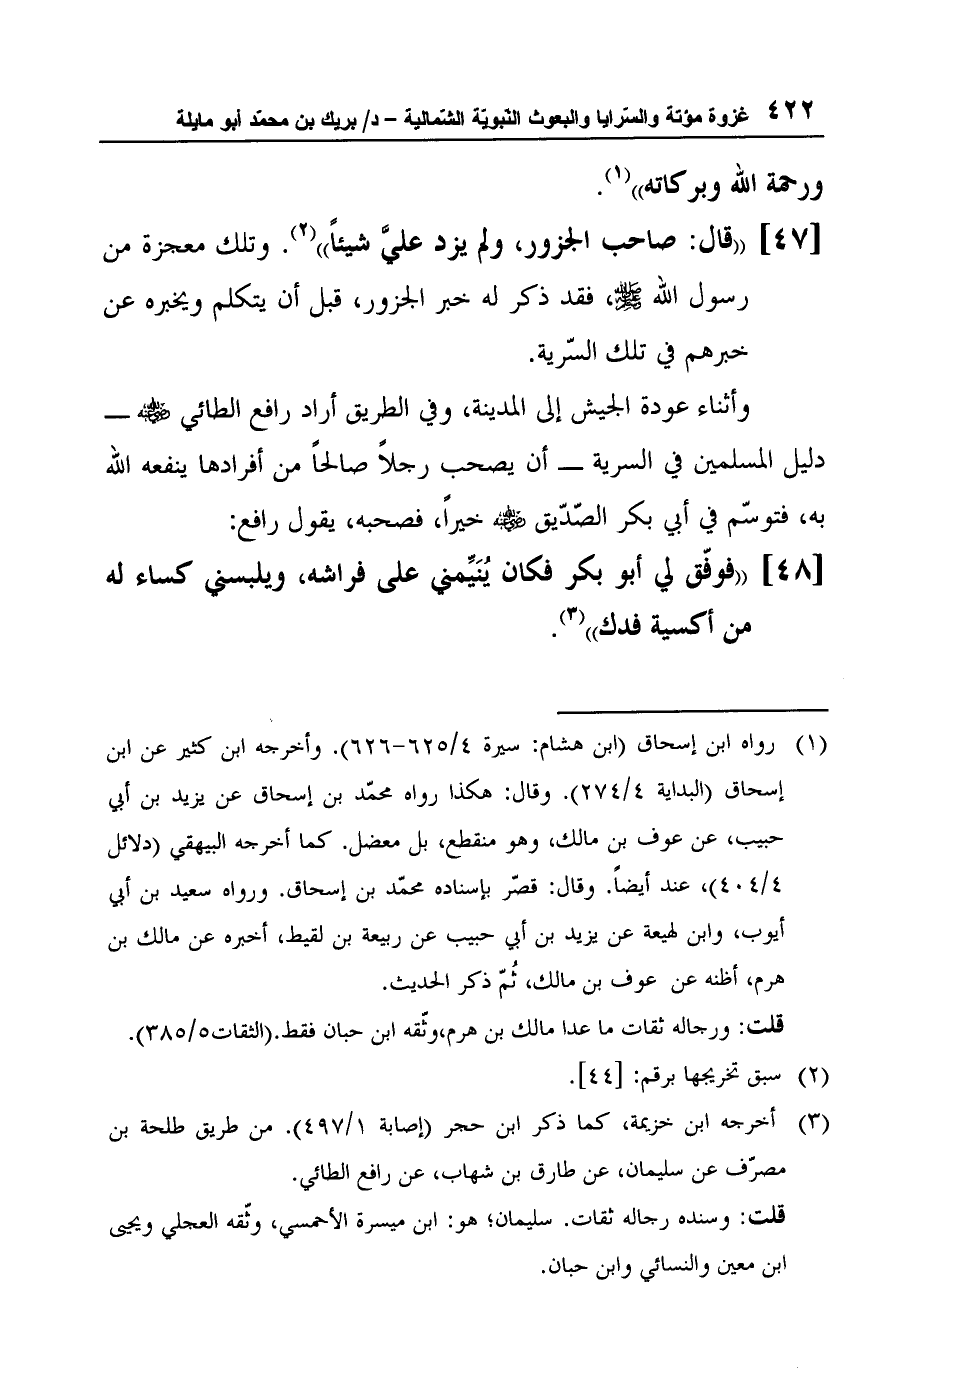 ٤٢٢ غزوة مؤتة والسّرايا والبعوث النّبويّة الشّمالية – د/ بريك بن محمّد أبو مايلة
ورحمة الله وبركاته))(١).
[٤٧] ((قال: صاحب الجزور، ولم يزد عليَّ شيئاً))(٢). وتلك معجزة من
رسول الله ﷺ، فقد ذكر له خبر الجزور، قبل أن يتكلم ويخبره عن
خبرهم في تلك السّرية.
وأثناء عودة الجيش إلى المدينة، وفي الطريق أراد رافع الطائي ﵁ ــ
دليل المسلمين في السرية ــ أن يصحب رجلاً صالحاً من أفرادها ينفعه الله
به، فتوسّم في أبي بكر الصّدّيق ﵁ خيراً، فصحبه، يقول رافع:
[٤٨] ((فوفّق لي أبو بكر فكان يُنَيِّمني على فراشه، ويلبسني كساء له
من أكسية فدك))(٣).
(١) رواه ابن إسحاق (ابن هشام: سيرة ٦٢٥/٤–٦٢٦). وأخرجه ابن كثير عن ابن
إسحاق (البداية ٢٧٤/٤). وقال: هكذا رواه محمّد بن إسحاق عن يزيد بن أبي
حبيب، عن عوف بن مالك، وهو منقطع، بل معضل. كما أخرجه البيهقي (دلائل
٤٠٤/٤)، عند أيضاً. وقال: قصّر بإسناده محمّد بن إسحاق. ورواه سعيد بن أبي
أيوب، وابن لهيعة عن يزيد بن أبي حبيب عن ربيعة بن لقيط، أخبره عن مالك بن
هرم، أظنه عن عوف بن مالك، ثُمّ ذكر الحديث.
قلت: ورجاله ثقات ما عدا مالك بن هرم،وثّقه ابن حبان فقط.(الثقات٣٨٥/٥).
(٢) سبق تخريجها برقم: [٤٤].
(٣) أخرجه ابن خزيمة، كما ذكر ابن حجر (إصابة ٤٩٧/١). من طريق طلحة بن
مصرّف عن سليمان، عن طارق بن شهاب، عن رافع الطائي.
قلت: وسنده رجاله ثقات. سليمان؛ هو: ابن ميسرة الأحمسي، وثّقه العجلي ويحيى
ابن معين والنسائي وابن حبان.